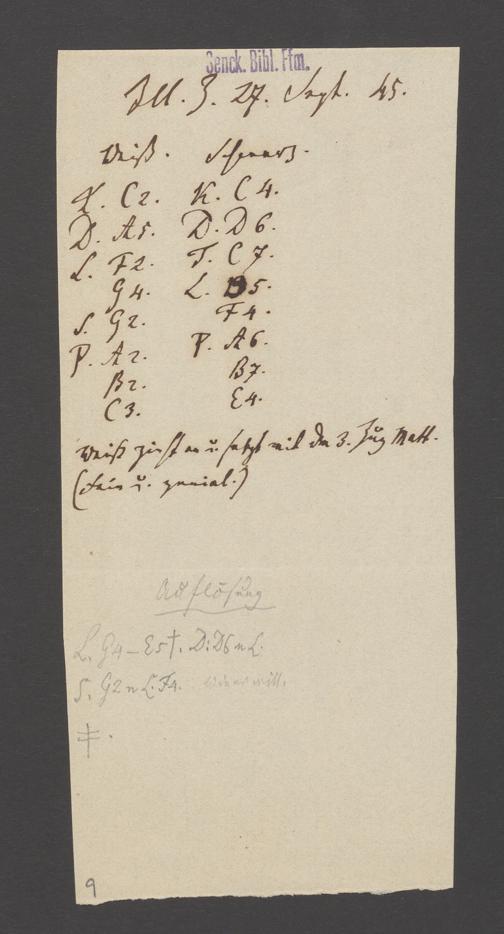 Senck. Bibl. Ffm.
Ill. Z. 27. Sept. 45.
Weiß. Schwarz.
K. C2. K. C4.
D. A5. D. D6.
L. F2. T. C7.
G4. L. B5.
S. G2. F4.
P. A2. P. A6.
B2. B7.
C3. E4.
Weiß zieht an u. setzt mit dem 3. Zug Matt.
(Fein u. genial.)
Auflösung
L. G4–E5†. D: D6 n L.
S. G2 n L. F4.
‡.
9